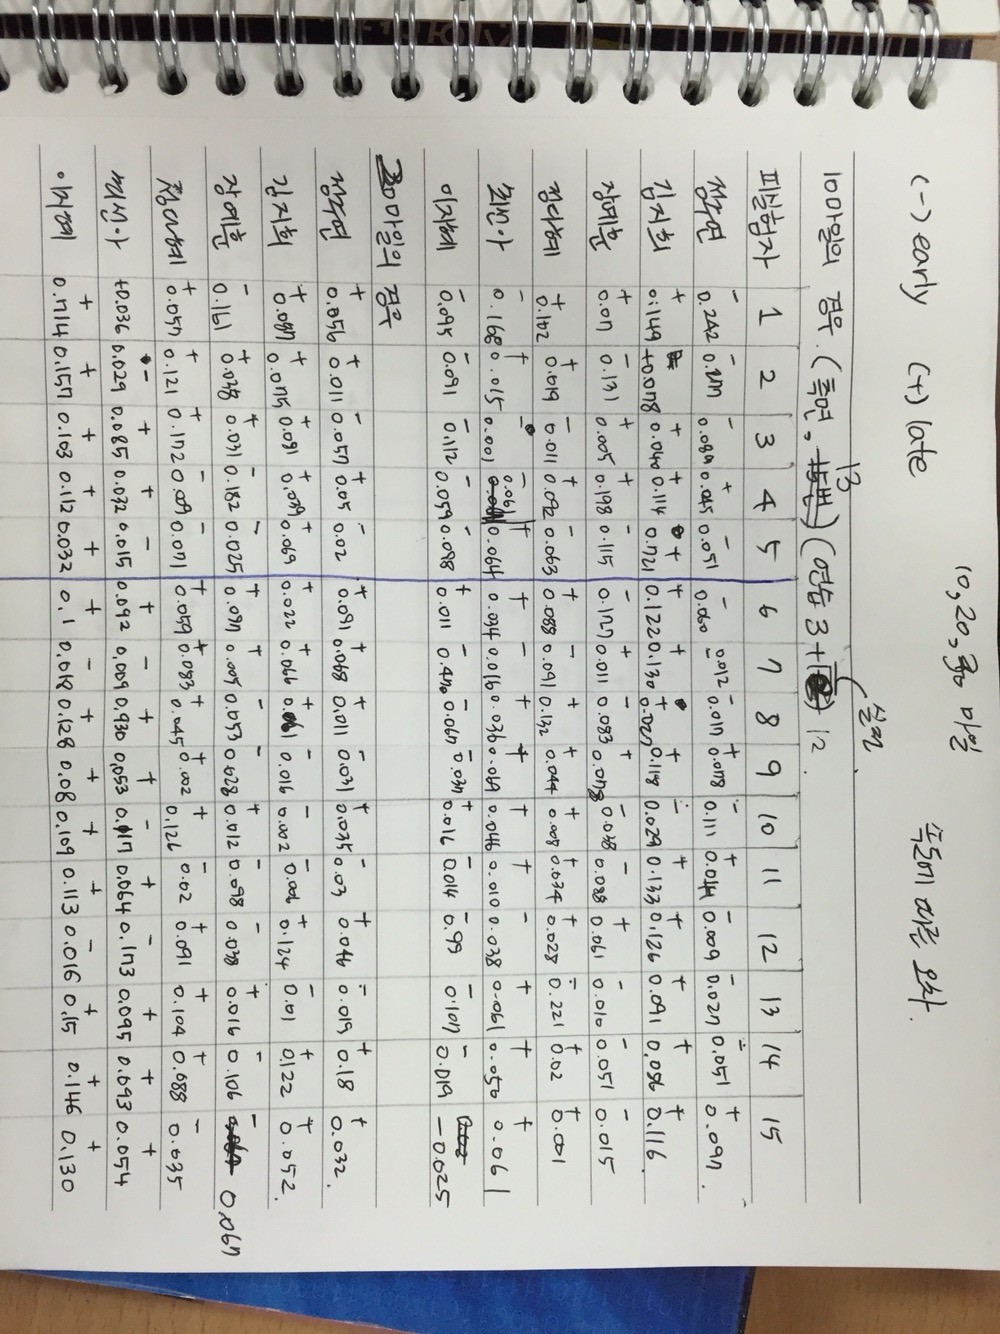 10,20,30 마일 속도에 따른 오차.
(-) early (+) late
실전
13
10마일의 경우. (측면, ) (연습 3 + 12
피실험자 1 2 3 4 5 6 7 8 9 10 11 12 13 14 15
- 0.242 - 0.277 - 0.089 + 0.045 - 0.051 - 0.060 - 0.012 - 0.017 + 0.078 - 0.111 + 0.044 - 0.009 - 0.027 - 0.051 + 0.097.
김지희 + 0.149 +0.078 + 0.040 + 0.114 + 0.721 + 0.122 + 0.130 + 0.027 + 0.118 - 0.029 + 0.133 + 0.126 + 0.091 + 0.086 + 0.116
장예훈 + 0.07 - 0.131 + 0.005 + 0.198 - 0.115 - 0.127 + 0.011 - 0.083 + 0.078 - 0.038 - 0.088 + 0.061 - 0.010 - 0.051 - 0.015
정다혜 + 0.102 + 0.019 - 0.011 + 0.092 - 0.063 + 0.088 - 0.091 + 0.132 + 0.044 + 0.008 + 0.034 + 0.028 - 0.221 + 0.02 + 0.001
최선아 - 0.168 + 0.015 - 0.001 - 0.061 + 0.064 + 0.014 - 0.016 + 0.036 + 0.069 + 0.046 + 0.010 - 0.038 + 0.061 + 0.050 + 0.061
이지혜 - 0.095 - 0.091 - 0.112 - 0.059 - 0.098 + 0.011 - 0.470 - 0.067 - 0.037 + 0.016 - 0.014 - 0.99 - 0.107 - 0.019 -0.025
30마일의 경우
+ 0.056 + 0.011 - 0.057 + 0.05 - 0.02 + 0.091 + 0.068 + 0.011 - 0.031 + 0.035 - 0.03 + 0.046 - 0.019 + 0.18 + 0.032.
김지희 + 0.087 + 0.075 + 0.091 + 0.039 + 0.069 + 0.022 + 0.066 + 0.061 - 0.016 - 0.002 - 0.002 + 0.124 - 0.01 + 0.122 + 0.052.
장예훈 - 0.161 + 0.028 + 0.031 - 0.182 - 0.025 + 0.097 + 0.005 - 0.053 - 0.028 + 0.012 - 0.098 - 0.038 + 0.016 - 0.106 - 0.067
정다혜 + 0.057 + 0.121 + 0.172 - 0.09 - 0.071 + 0.059 + 0.083 + 0.045 + 0.002 + 0.126 - 0.02 + 0.091 + 0.104 + 0.088 - 0.035
최선아 +0.036 - 0.029 + 0.085 + 0.032 - 0.015 + 0.092 - 0.009 + 0.030 + 0.053 - 0.017 + 0.064 - 0.173 + 0.095 + 0.093 + 0.054
이지혜 + 0.714 + 0.157 + 0.103 + 0.112 + 0.032 + 0.1 - 0.018 + 0.128 + 0.08 + 0.109 + 0.113 - 0.016 + 0.15 + 0.146 + 0.130